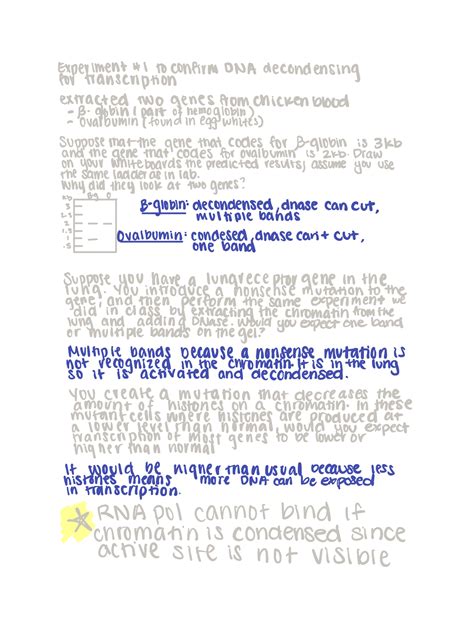 Experiment #1 to confirm DNA decondensing
for transcription
extracted two genes from chicken blood
- β-globin (part of hemoglobin)
- ovalbumin (found in egg whites)
Suppose that the gene that codes for β-globin is 3kb
and the gene that codes for ovalbumin is 2kb. Draw
on your whiteboards the predicted results; assume you use
the same ladder as in lab.
Why did they look at two genes?
kb Bg O
3
2.5
2
1.5
1
.5
β-globin: decondensed, dnase can cut,
multiple bands
Ovalbumin: condesed, dnase can't cut,
one band
Suppose you have a lung receptor gene in the
lung. You introduce a nonsense mutation to the
gene, and then perform the same experiment we
did in class by extracting the chromatin from the
lung and adding DNase. Would you expect one band
or multiple bands on the gel?
Multiple bands because a nonsense mutation is
not recognized in the chromatin. It is in the lung
so it is activated and decondensed.
You create a mutation that decreases the
amount of histones on a chromatin. In these
mutant cells where histones are produced at
a lower level than normal, would you expect
transcription of most genes to be lower or
higher than normal
It would be higher than usual because less
histones means more DNA can be exposed
in transcription.
RNA pol cannot bind if
chromatin is condensed since
active site is not visible